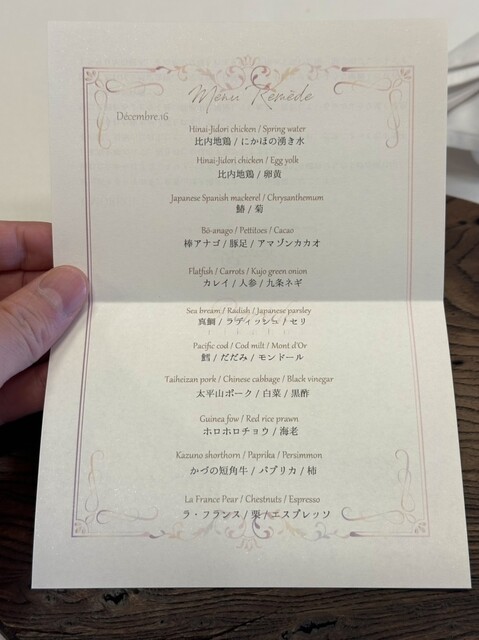 Menu Remède
Décembre.16
Hinai-Jidori chicken / Spring water
比内地鶏 / にかほの湧き水
Hinai-Jidori chicken / Egg yolk
比内地鶏 / 卵黄
Japanese Spanish mackerel / Chrysanthemum
鰆 / 菊
Bō-anago / Pettitoes / Cacao
棒アナゴ / 豚足 / アマゾンカカオ
Flatfish / Carrots / Kujo green onion
カレイ / 人参 / 九条ネギ
Sea bream / Radish / Japanese parsley
真鯛 / ラディッシュ / セリ
Pacific cod / Cod milt / Mont d'Or
鱈 / だだみ / モンドール
Taiheizan pork / Chinese cabbage / Black vinegar
太平山ポーク / 白菜 / 黒酢
Guinea fow / Red rice prawn
ホロホロチョウ / 海老
Kazuno shorthorn / Paprika / Persimmon
かづの短角牛 / パプリカ / 柿
La France Pear / Chestnuts / Espresso
ラ・フランス / 栗 / エスプレッソ